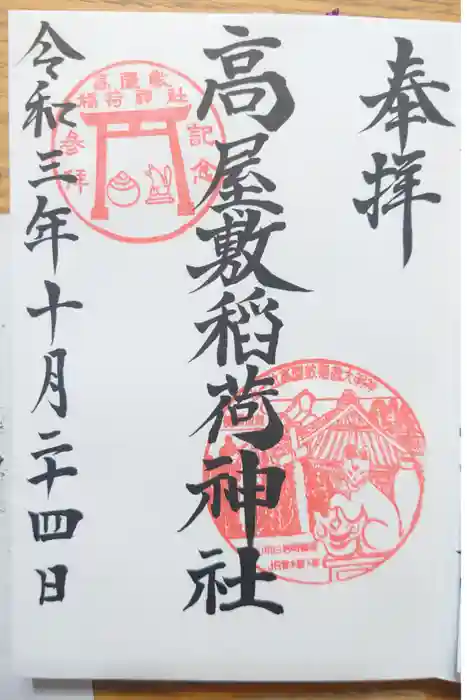 奉拝
高屋敷稲荷神社
令和三年十月二十四日
高屋敷
稲荷神社
参拝
記念